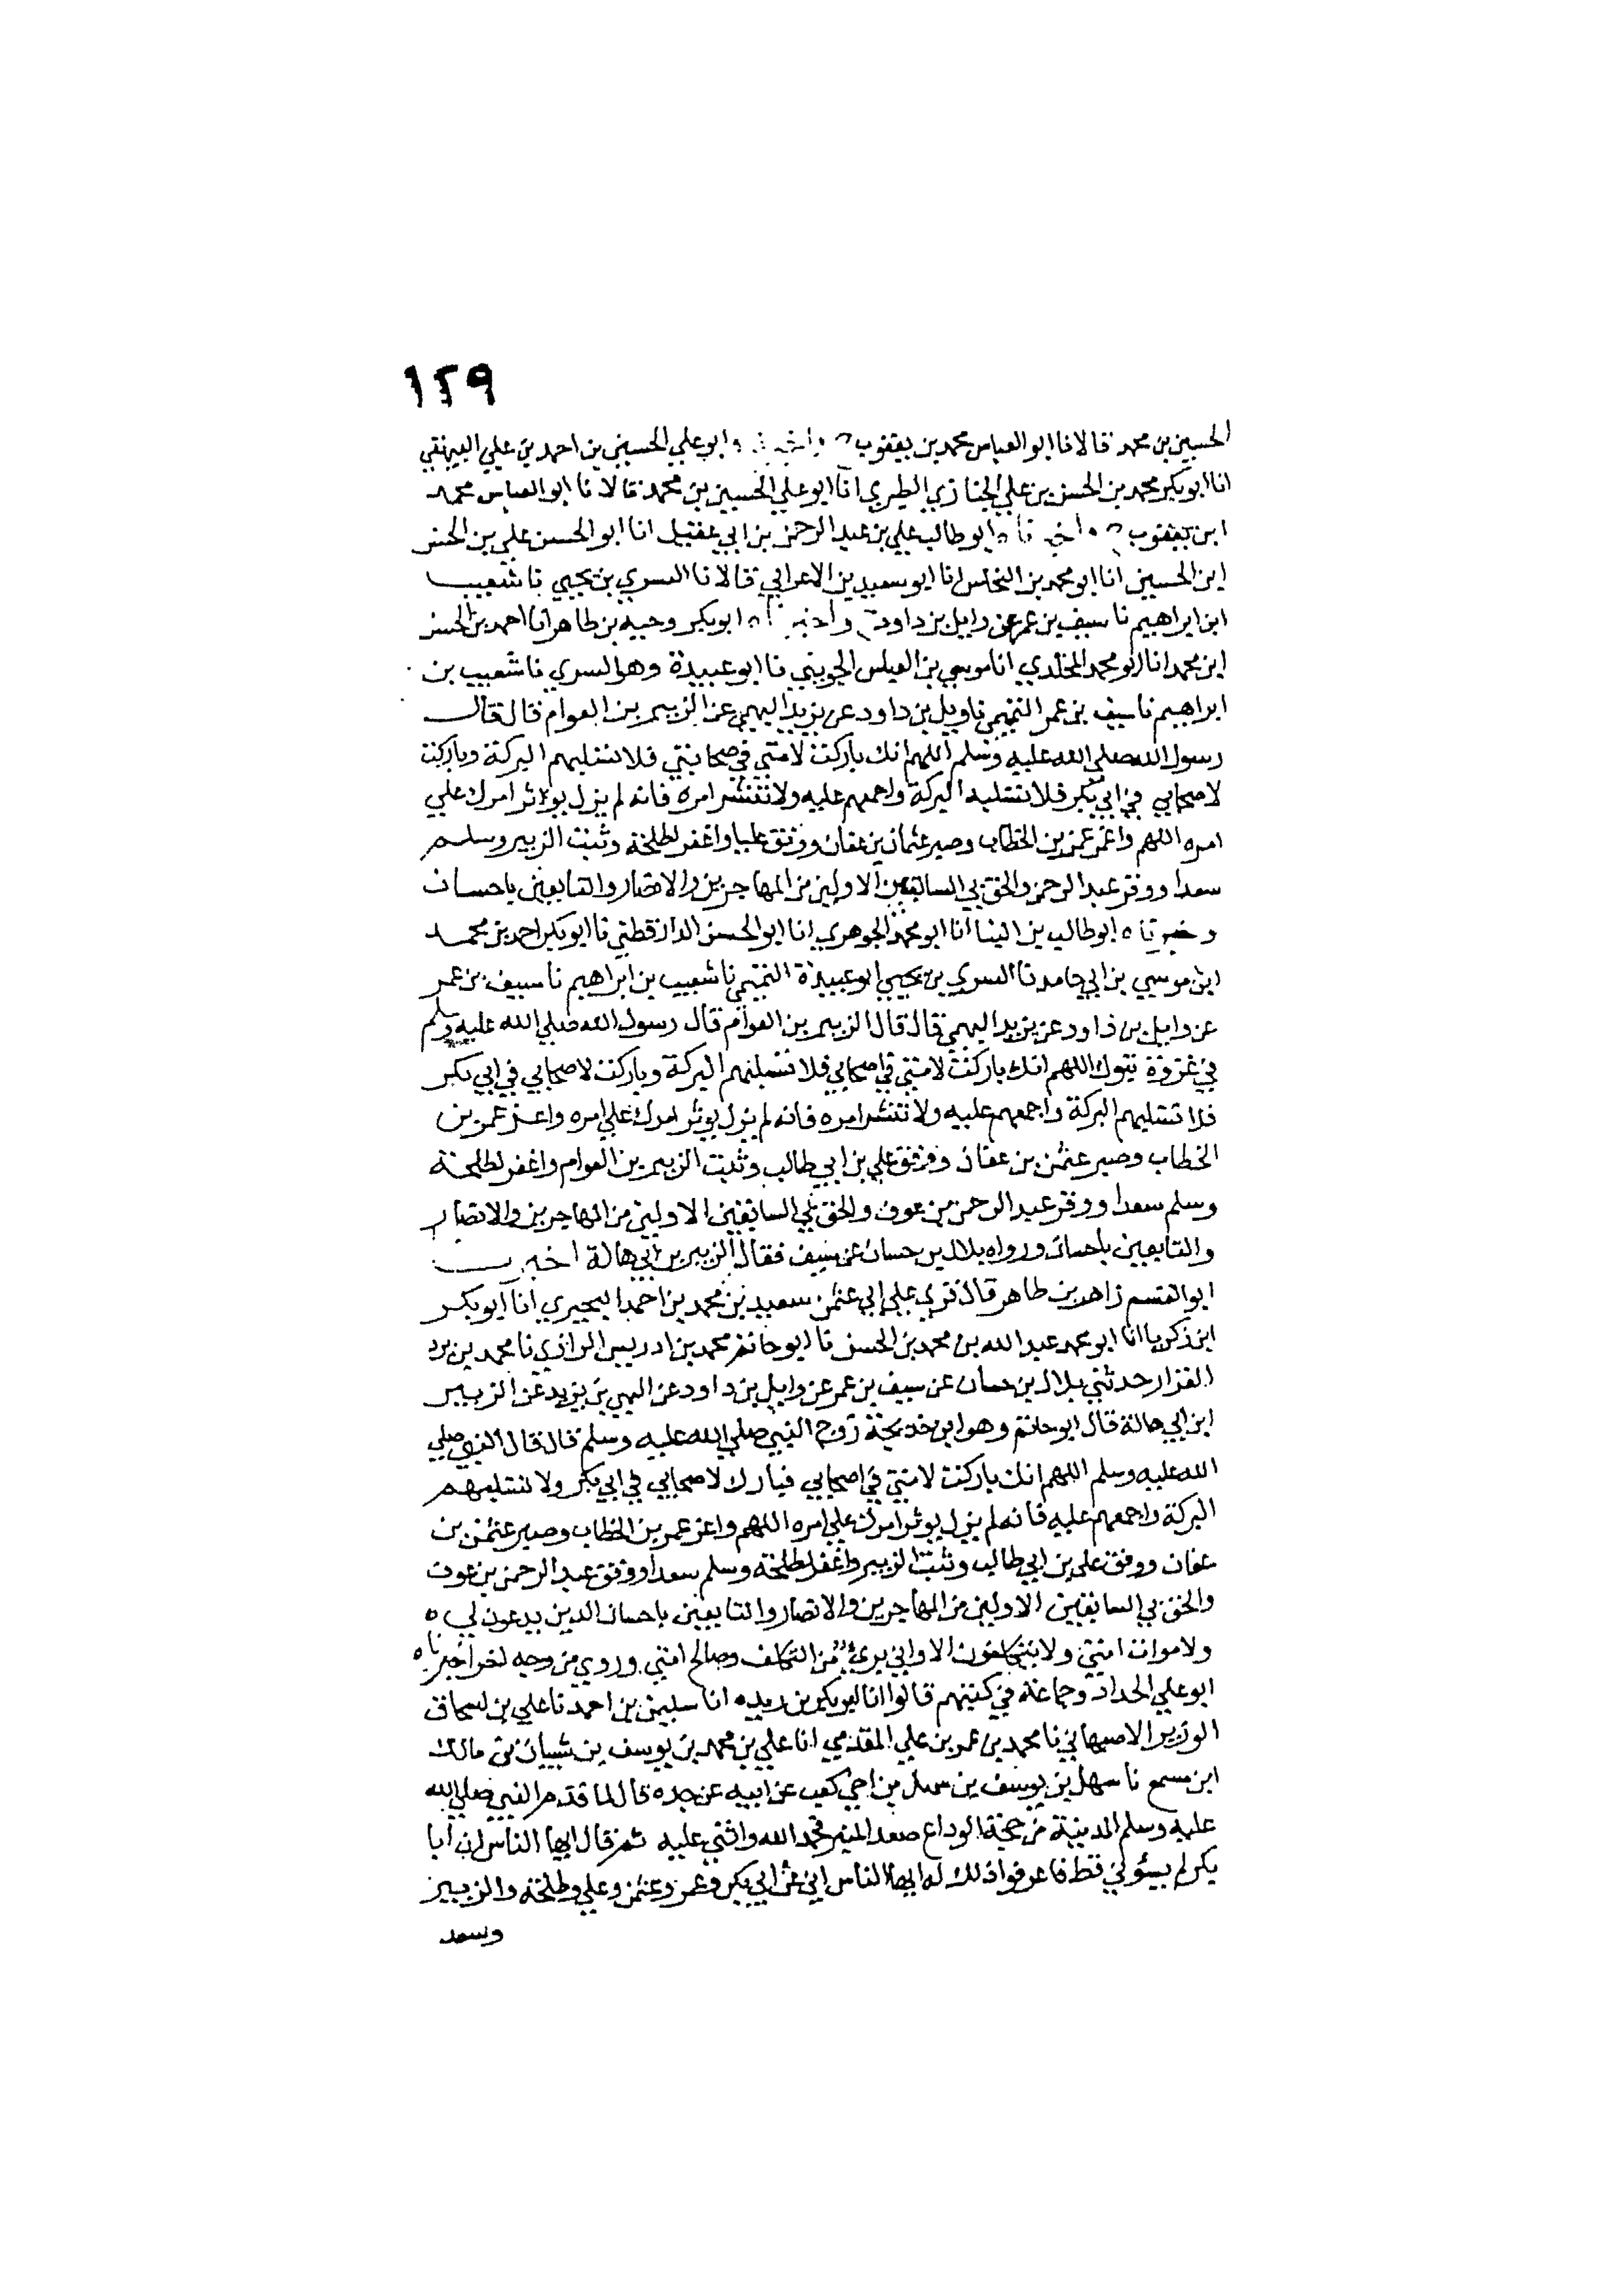 ١٢٩
الحسين بن محمد قالا نا ابو العباس محمد بن يعقوب ح و ابو علي الحسين بن احمد بن علي البيهقي
انا ابو بكر محمد بن الحسن بن علي الطبري انا ابو علي الحسين بن محمد قالا نا ابو العباس محمد
ابن يعقوب ح واخبرناه ابو طالب علي بن عبد الرحمن بن ابي عقيل انا ابو الحسن علي بن الحسن
ابن الحسين انا ابو محمد بن النحاس انا ابو سعيد بن الاعرابي قالا نا السري بن يحيي نا شعيب
ابن ابراهيم نا سيف بن عمر عن وايل بن داود ح واخبرناه ابو بكر وجيه بن طاهر انا احمد بن الحسن
ابن محمد انا ابو محمد المخلدي انا موسي بن العباس الجويني نا ابو عبيدة وهو السري نا شعيب بن
ابراهيم نا سيف بن عمر التميمي نا وايل بن داود عن يزيد البهي عن الزبير بن العوام قال قال
رسول الله صلي الله عليه وسلم اللهم انك باركت لامتي في صحابتي فلا تسلبهم البركة وباركت
لاصحابي في ابي بكر فلا تسلبه البركة واجمعهم عليه ولا تنشر امره فانه لم يزل يوثر امرك علي
امره اللهم واعز عمر بن الخطاب وصبر عثمان بن عفان ووفق عليا واغفر لطلحة وثبت الزبير وسلم
سعدا ووقر عبد الرحمن والحق بي السابقين الاولين من المهاجرين والانصار والتابعين باحسان
واخبرناه ابو طالب بن البنا انا ابو محمد الجوهري انا ابو الحسن الدارقطني نا ابو بكر احمد بن محمد
ابن موسي بن ابي حامد نا السري بن يحيي ابو عبيدة التميمي نا شعيب بن ابراهيم نا سيف بن عمر
عن وايل بن داود عن يزيد البهي قال قال الزبير بن العوام قال رسول الله صلي الله عليه وسلم
في غزوة تبوك اللهم انك باركت لامتي في اصحابي فلا تسلبهم البركة وباركت لاصحابي في ابي بكر
فلا تسلبهم البركة واجمعهم عليه ولا تنشر امره فانه لم يزل يوثر امرك علي امره واعز عمر بن
الخطاب وصبر عثمن بن عفان ووفق علي بن ابي طالب وثبت الزبير بن العوام واغفر لطلحة
وسلم سعدا ووقر عبد الرحمن بن عوف والحق بي السابقين الاولين من المهاجرين والانصار
والتابعين باحسان ورواه بلال بن حسان عن سيف فقال الزبير بن ابي هالة اخبرنا
ابو القسم زاهر بن طاهر قال قري علي ابي عثمن سعيد بن محمد بن احمد البحيري انا ابو بكر
ابن زكريا انا ابو محمد عبد الله بن محمد بن الحسن نا ابو حاتم محمد بن ادريس الرازي نا محمد بن يزد
الفزار حدثني بلال بن حسان عن سيف بن عمر عن وايل بن داود عن البهي بن يزيد عن الزبير
ابن ابي هالة قال ابو حاتم وهو ابن خديجة زوج النبي صلي الله عليه وسلم قال قال النبي صلي
الله عليه وسلم اللهم انك باركت لامتي في اصحابي فبارك لاصحابي في ابي بكر ولا تسلبهم
البركة واجمعهم عليه فانه لم يزل يوثر امرك علي امره اللهم واعز عمر بن الخطاب وصبر عثمن بن
عفان ووفق علي بن ابي طالب وثبت الزبير واغفر لطلحة وسلم سعدا ووفق عبد الرحمن بن عوف
والحق بي السابقين الاولين من المهاجرين والانصار والتابعين باحسان الذين يدعون لي ه
ولاموات امتي ولا يتكلفون الا واني بريء من التكلف وصالح امتي وروي من وجه اخر اخبرناه
ابو علي الحداد وجماعة في كتبهم قالوا انا ابو بكر بن ريذه انا سليمن بن احمد نا علي بن اسحاق
الوزير الاصبهاني نا محمد بن عمر بن علي المقدمي انا علي بن محمد بن يوسف بن شيبان بن مالك
ابن مسمع نا سهل بن يوسف بن سهل بن اخي كعب عن ابيه عن جده قال لما قدم النبي صلي الله
عليه وسلم المدينة من حجة الوداع صعد المنبر فحمد الله واثني عليه ثم قال ايها الناس ان ابا
بكر لم يسؤني قط فاعرفوا ذلك له ايها الناس اني عن ابي بكر وعمر وعثمن وعلي وطلحة والزبير
وسعد